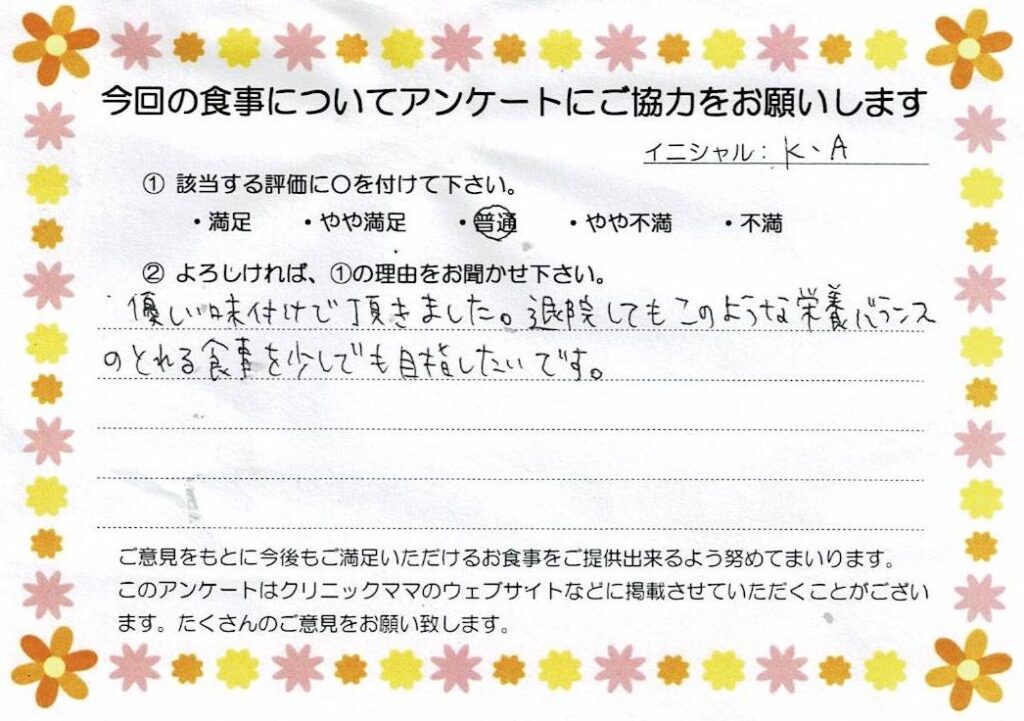 今回の食事についてアンケートにご協力をお願いします
イニシャル：K、A
① 該当する評価に〇を付けて下さい。
・満足 ・やや満足 ・普通 ・やや不満 ・不満
② よろしければ、①の理由をお聞かせ下さい。
優しい味付けで頂きました。退院してもこのような栄養バランス
のとれる食事を少しでも目指したいです。
ご意見をもとに今後もご満足いただけるお食事をご提供出来るよう努めてまいります。
このアンケートはクリニックママのウェブサイトなどに掲載させていただくことがござい
ます。たくさんのご意見をお願い致します。